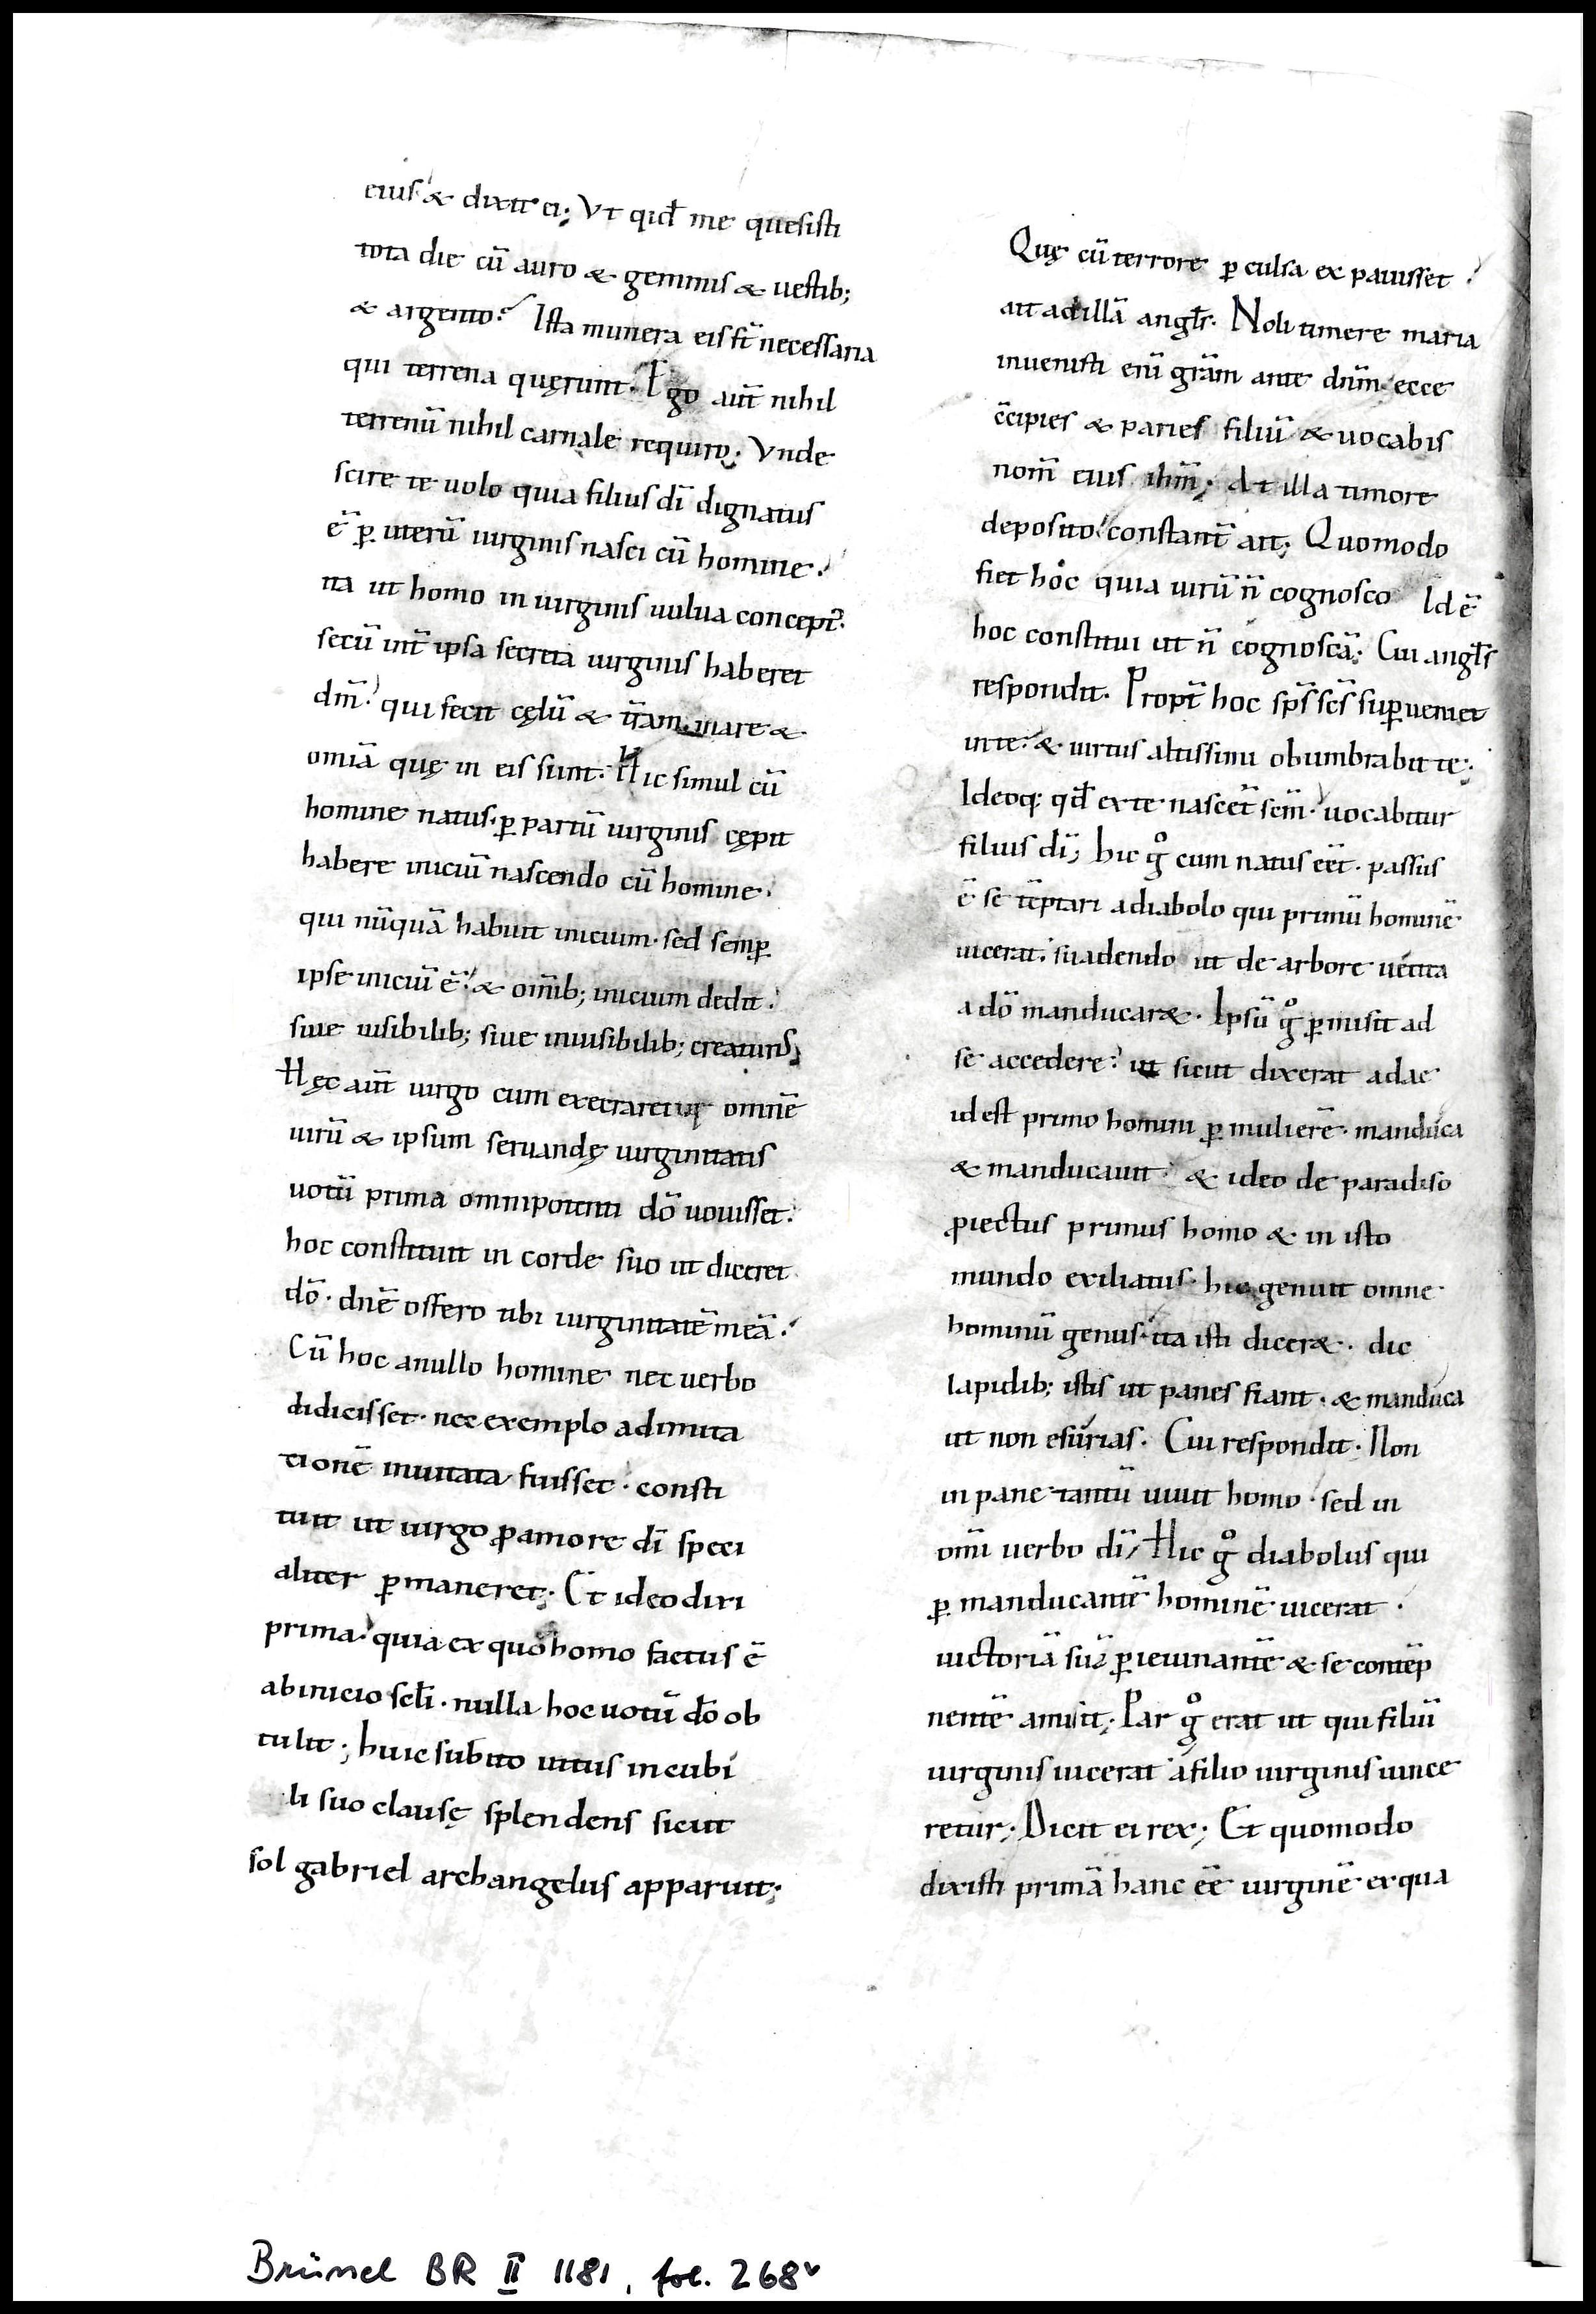 eius & dixit ei; Vt qid̄ me quesisti
tota die cū auro & gemmis & uestib;
& argento? Ista munera eis st̄ necessaria
qui terrena quęrunt. Ego aut̄ nihil
terrenū nihil carnale requiro. Vnde
scire te uolo quia filius dī dignatus
ē ꝑ uterū uirginis nasci cū homine.
ita ut homo in uirginis uulua concept᷒.
secū int̄ ipsa secreta uirginis haberet
dm̄. qui fecit cęlū & t̄ram. mare &
omīa quę in eis sunt. Hic simul cū
homine natus. ꝑ partū uirginis cępit
habere iniciū nascendo cū homine.
qui nūquā habuit inicium. sed semꝑ
ipse iniciū ē. & om̄ib; inicium dedit.
siue uisibilib; siue inuisibilib; creaturis;
Hęc aut̄ uirgo cum execraretur omnē
uirū & ipsum seruandę uirginitatis
uotū prima omnipotenti dō uouisset.
hoc constituit in corde suo ut diceret
dō. dnē offero tibi uirginitatē meā.
Cū hoc a nullo homine nec uerbo
didicisset. nec exemplo ad imita
tionē inuitata fuisset. consti
tuit ut uirgo ꝓ amore dī speci
aliter ꝑmaneret; Et ideo dixi
prima. quia ex quo homo factus ē
ab inicio sc̄li. nulla hoc uotū dō ob
tulit; huic subito intus in cubi
li suo clausę splendens sicut
sol gabriel archangelus apparuit;
Quę cū terrore ꝑculsa expauisset.
ait ad illā angl̄s. Noli timere maria
inuenisti enī gr̄am ante dnm̄. ecce
c̄cipies & paries filiū & uocabis
nom̄ eius ihm̄; At illa timore
deposito constant̄ ait; Quomodo
fiet hoc quia uirū n̄ cognosco Id ē
hoc constitui ut n̄ cognoscā; Cui angl̄s
respondit. Propt̄ hoc sp̄s sc̄s suꝑueniet
in te. & uirtus altissimi obumbrabit te;
Ideoq; qd̄ ex te nascet̄ scm̄. uocabitur
filius dī; hic gͦ cum natus eēt. passus
ē se tēptari a diabolo qui primū hominē
uicerat. suadendo ut de arbore uetita
a dō manducar&. Ipsū gͦ ꝑmisit ad
se accedere. ut sicut dixerat adae
id est primo homini ꝑ mulierē. manduca
& manducauit. & ideo de paradiso
ꝓiectus primus homo & in isto
mundo exiliatus. hic genuit omne
hominū genus. ita isti dicer&. dic
lapidib; istis ut panes fiant. & manduca
ut non esurias. Cui respondit. Non
in pane tantū uiuit homo. sed in
om̄i uerbo dī; Hic gͦ diabolus qui
ꝑ manducantē hominē uicerat.
uictoriā suā ꝑ ieiunantē & se contēp
nentē amisit; Par gͦ erat ut qui filiū
uirginis uicerat a filio uirginis uince
retur; Dicit ei rex; Et quomodo
dixisti primā hanc eē uirginē ex qua
Brüssel BR II 1181, fol. 268v